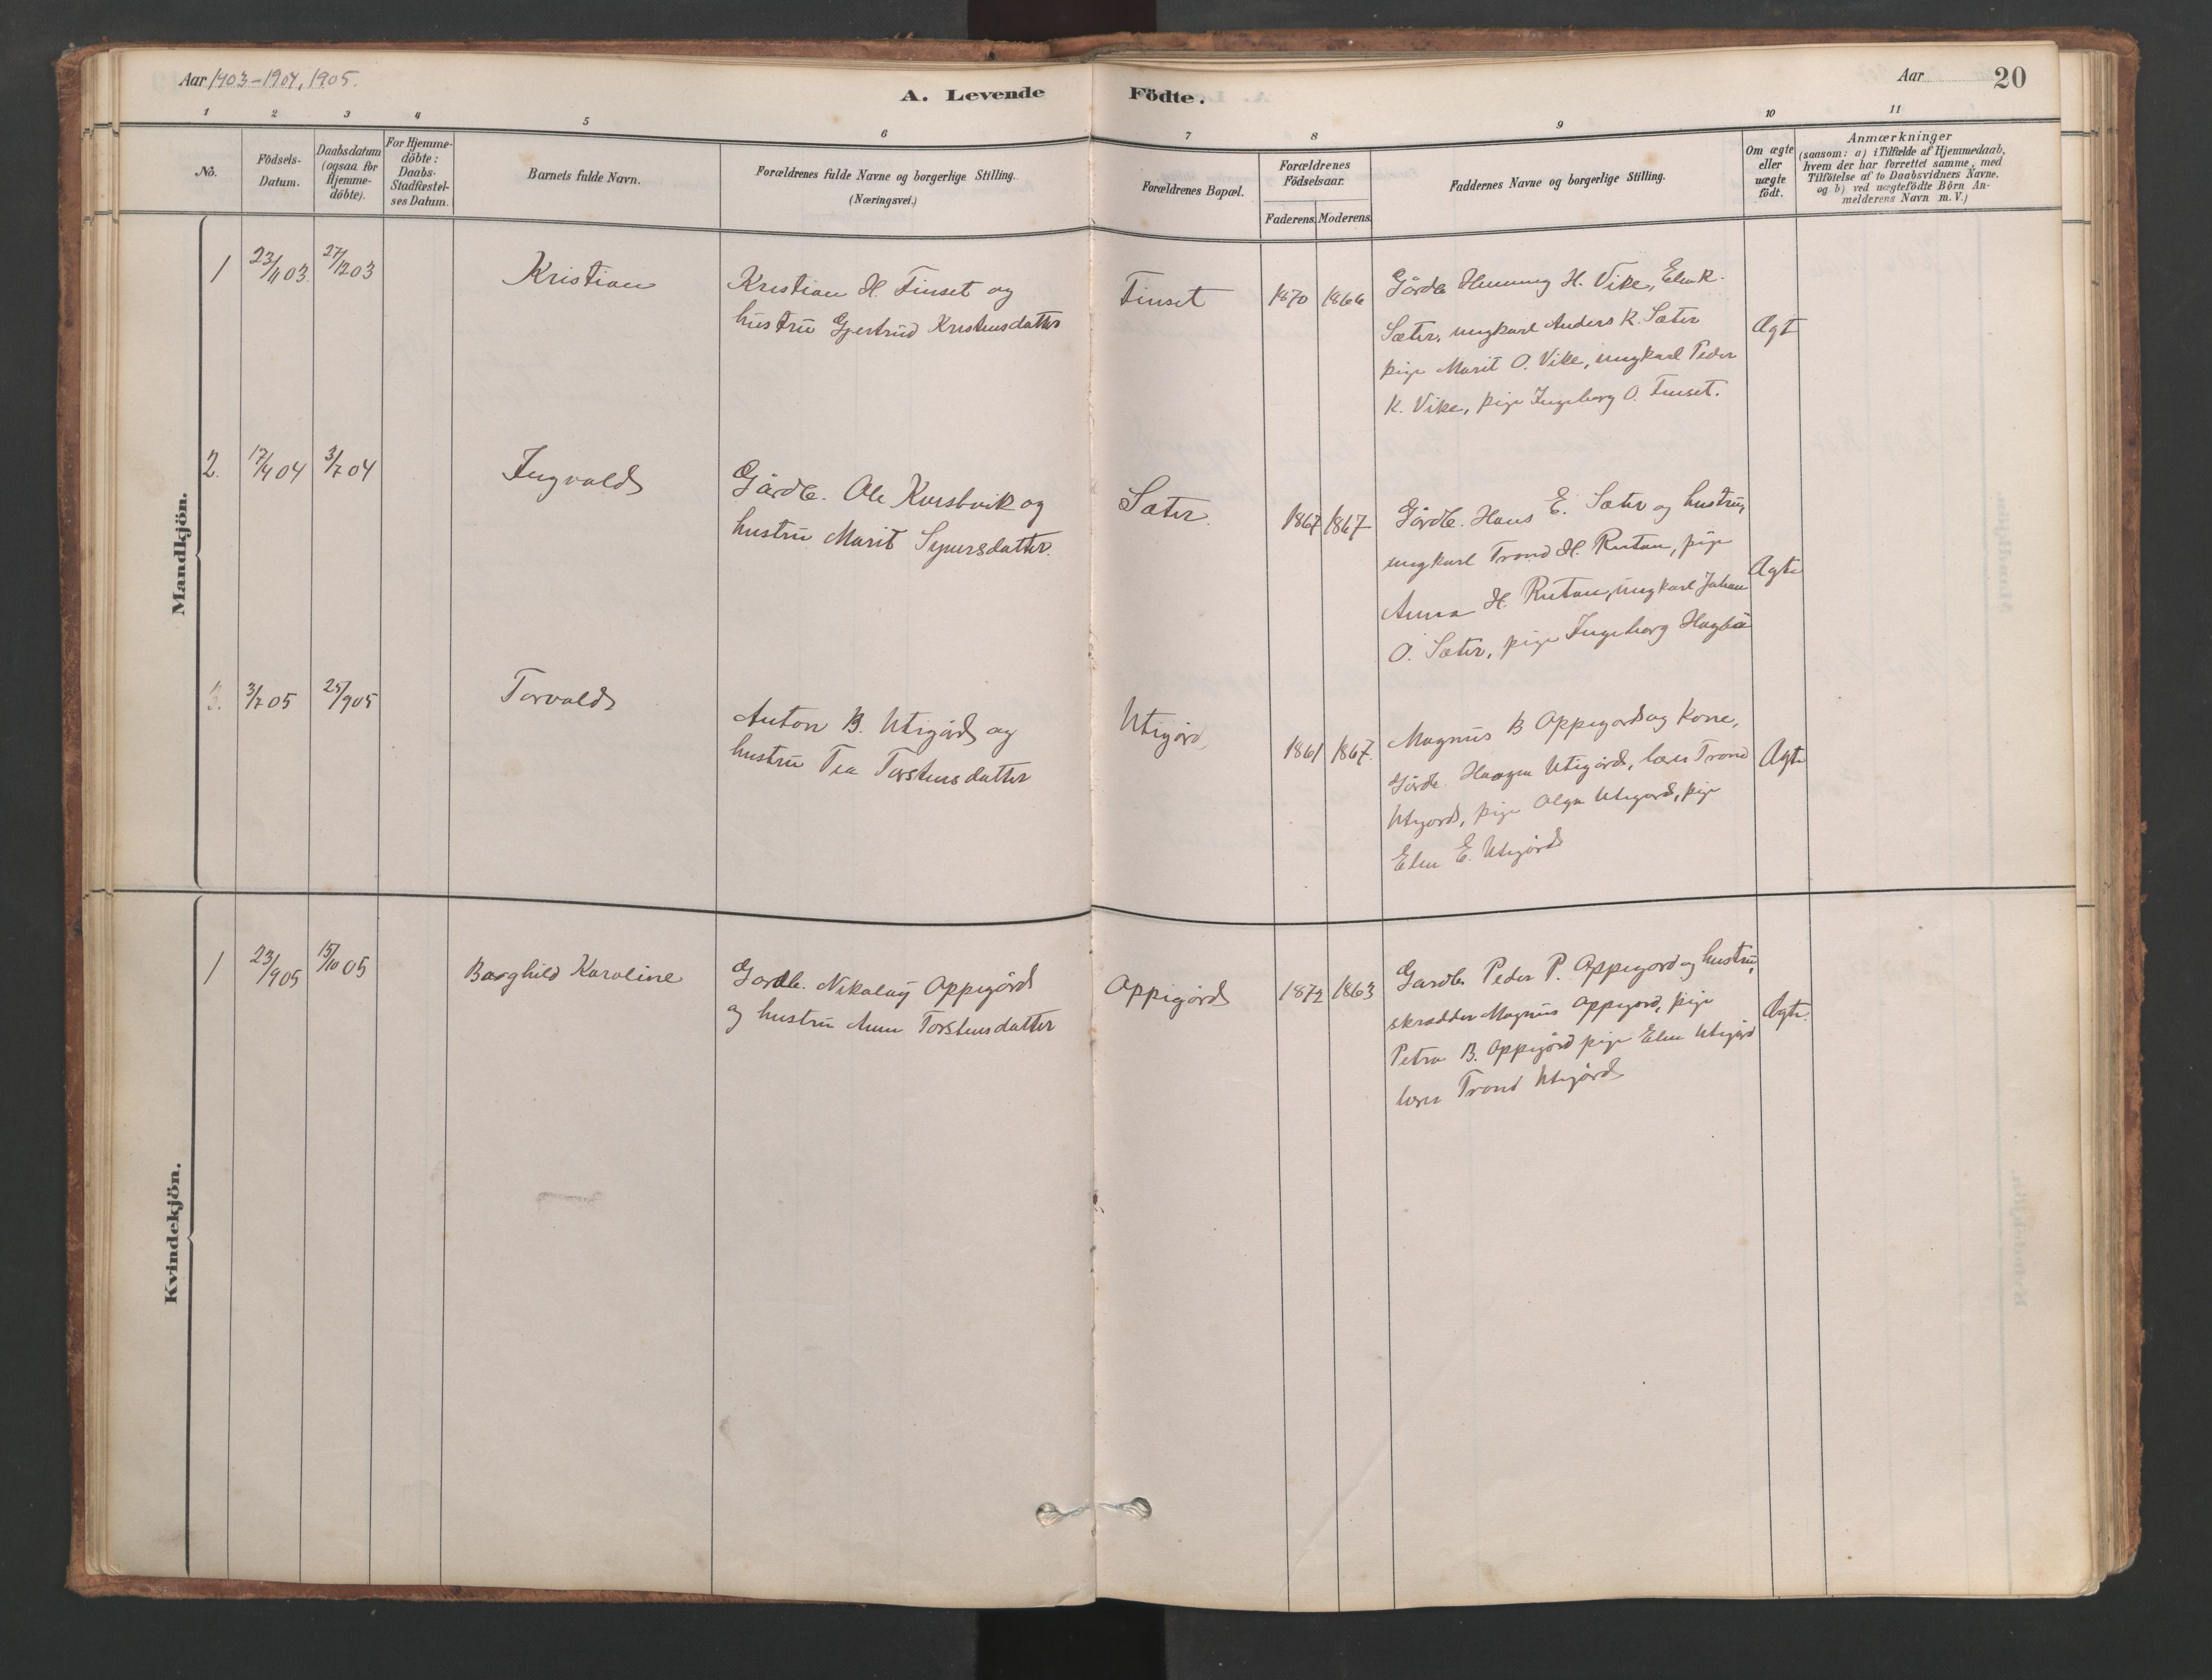 Aar 1903-1904, 1905.
A. Levende Födte.
Aar
20
1 2 3 4 5 6 7 8 9 10 11
No.
Födsels-
Datum.
Daabsdatum
(ogsaa for
Hjemme-
döbte).
For Hjemme-
döbte:
Daabs-
Stadfæstel-
ses Datum.
Barnets fulde Navn.
Forældrenes fulde Navne og borgerlige Stilling.
(Næringsvei.)
Forældrenes Bopæl.
Forældrenes
Födselsaar.
Faderens. Moderens.
Faddernes Navne og borgerlige Stilling.
Om ægte
eller
uægte
födt.
Anmærkninger
(saasom: a) i Tilfælde af Hjemmedaab,
hvem der har forrettet samme, med
Tilföielse af to Daabsvidners Navne.
og b) ved uægtefödte Börn An-
melderens Navn m. V.)
Mandkjön.
1
23/11 03.
27/12 03
Kristian
Kristian H. Finset og
hustru Gjertrud Kristensdatter
Finset
1870
1866
Gårdb. Henning H. Vike, Elen K.
Sæter, ungkarl Anders K. Sæter
pige Marit O. Vike, ungkarl Peder
K. Vike, pige Ingeborg O. Finset.
Ægt
2.
17/4 04
3/7 04
Ingvald
Gårdb. Ole Korsbvik og
hustru Marit Syversdatter.
Sæter.
1867
1867
Gårdb. Hans E. Sæter og hustru,
ungkarl Trond H. Rutan, pige
Anna H. Rutan, ungkarl Johan
O. Sæter, pige Ingeborg Hagbø
Ægte
3.
3/7 05
25/9 05
Torvald
Anton B. Utigård og
hustru Tea Torstensdatter
Utigård
1861
1867.
Magnus B Oppigard og Kone,
Gårdb. Haagen Utigård, lærer Trond
Utigard, pige Olga Utigard, pige
Elen E. Utigård
Ægte
Kvindekjön.
1
23/9 05
15/10 05
Borghild Karoline
Gardb. Nikolay Oppigård
og hustru Anne Torstensdatter
Oppigård
1872
1863
Gardb. Peder P. Oppigard og hustru,
skrædder Magnus Oppigard, pige
Petra B. Oppigård pige Elen Utigård
lærer Trond Utigård
Ægte.